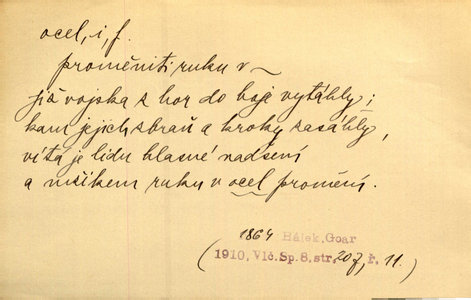 ocel, i, f.
proměniti ruku v ~
již vojska z hor do boje vytáhly;
kam jejich zbraň a kroky zasáhly,
vítá je lidu hlasné nadšení
a mžikem ruku v ocel promění.
1864 Hálek, Goar
(1910, Vlč. Sp. 8, str. 207, ř. 11.)